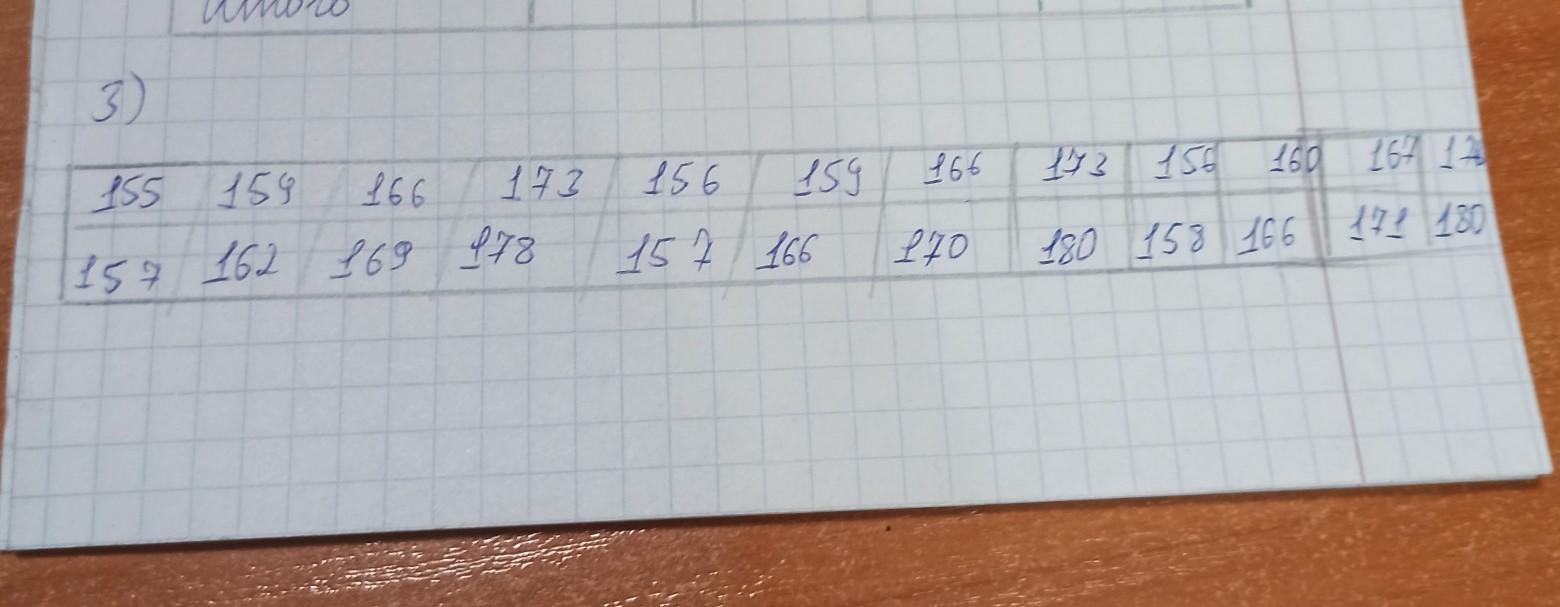 Итого
3)
155 159 166 173 156 159 166 173 156 160 167
157 162 169 178 157 166 170 180 158 166 171 180